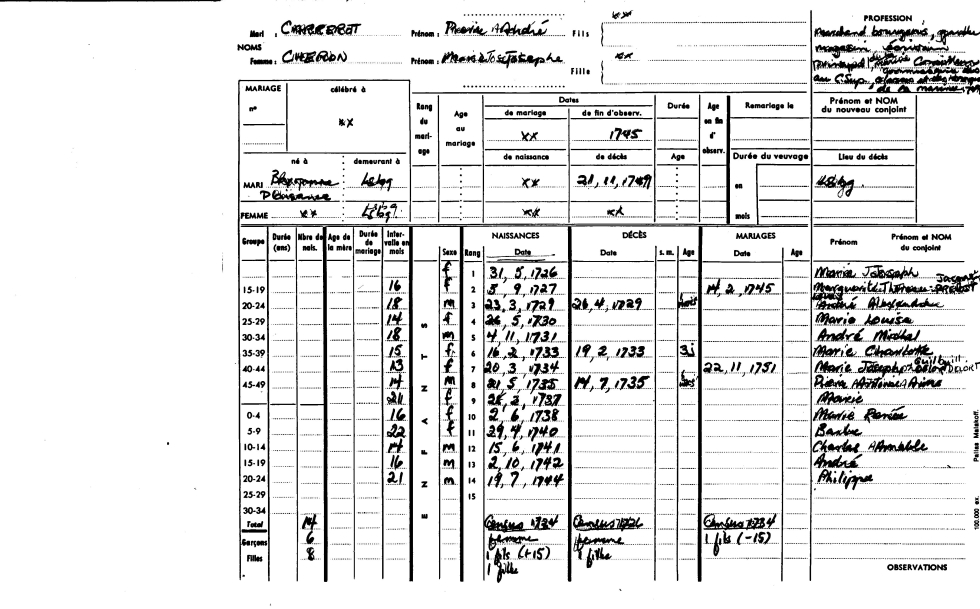 Mari : CARREROT Prénom : Pierre André Fils xx PROFESSION
NOMS
Femme : CHERON Prénom : Marie Josephe Fille xx
marchand bourgeois, garde
magasin, écrivain
principal,
au C. Sup.,
de la marine
MARIAGE célébré à
n°
xx
Rang du mariage Age au mariage Dates Durée Age en fin d'observ. Remariage le Prénom et NOM du nouveau conjoint
de mariage de fin d'observ.
xx 1745
né à demeurant à de naissance de décès Age Durée du veuvage Lieu du décès
MARI Lsbg xx 21, 11, 1749 en Lsbg.
FEMME xx Lsbg. xx xx mois
Groupe Durée (ans) Nbre de nais. Age de la mère Durée de mariage Intervalle en mois ENFANTS Sexe Rang NAISSANCES Date DÉCÈS Date s. m. Age MARIAGES Date Age Prénom Prénom et NOM du conjoint
f 1 31, 5, 1726 Marie Joseph
15-19 16 f 2 5 9, 1727 14, 2, 1745 Jacques
20-24 18 m 3 23, 3, 1729 26, 4, 1729 André Alexandre
25-29 14 f 4 26, 5, 1730 Marie Louise
30-34 18 m 5 4 11, 1731 André Michel
35-39 15 f 6 16, 2, 1733 19, 2, 1733 3j Marie Charlotte
40-44 13 f 7 20, 3, 1734 22, 11, 1751 Marie Joseph DELORT
45-49 14 m 8 21 5, 1735 14, 7, 1735 Pierre Antoine Aimé
21 f 9 Marie
0-4 16 f 10 2 6, 1738 Marie Renée
5-9 22 f 11 29, 4, 1740 Barbe
10-14 14 m 12 15, 6, 1741 Charles Amable
15-19 16 m 13 2, 10, 1742 André
20-24 21 m 14 19, 7, 1744 Philippe
25-29 15
30-34
Total 14 Census 1734 Census 1726 Census 1734
Garçons 6 femme femme 1 fils (-15)
Filles 8 1 fils (+15) 1 fille
1 fille
OBSERVATIONS